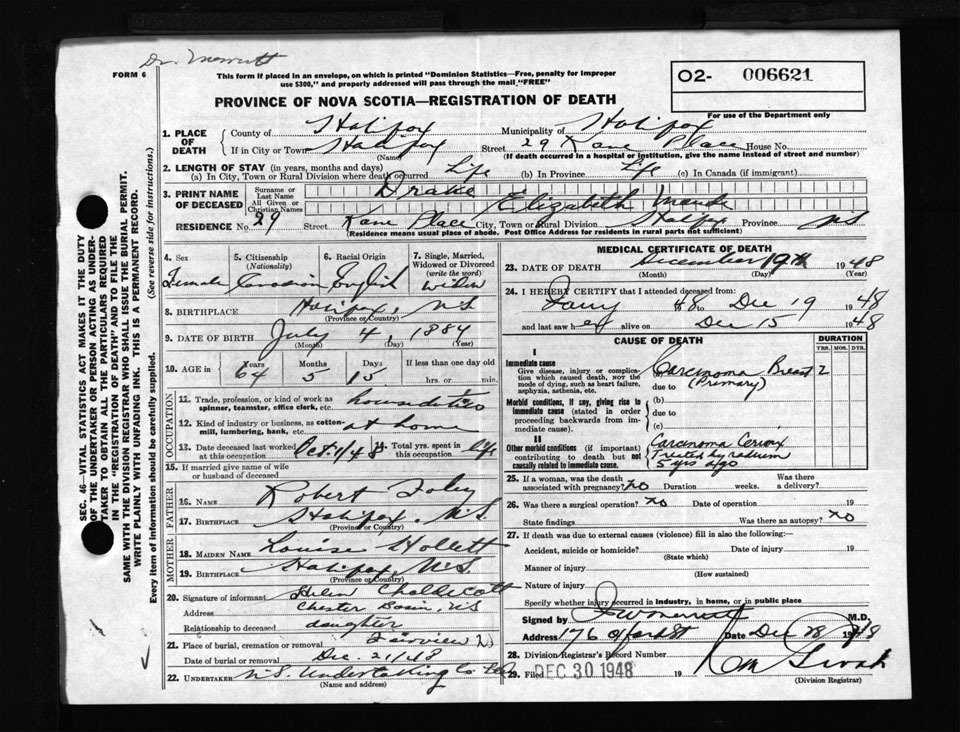 FORM 6
This form if placed in an envelope, on which is printed "Dominion Statistics—Free, penalty for improper
use $300," and properly addressed will pass through the mail "FREE"
O2- 006621
For use of the Department only
PROVINCE OF NOVA SCOTIA—REGISTRATION OF DEATH
1. PLACE OF DEATH
County of Halifax Municipality of Halifax
If in City or Town Halifax Street 29 Kane Place House No.
(Name) (If death occurred in a hospital or institution, give the name instead of street and number)
2. LENGTH OF STAY (in years, months and days)
(a) In City, Town or Rural Division where death occurred Life (b) In Province Life (c) In Canada (if immigrant)
3. PRINT NAME OF DECEASED
Surname or Last Name Drake
All Given or Christian Names Elizabeth Maude
RESIDENCE No. 29 Street Kane Place City, Town or Rural Division Halifax Province NS
(Residence means usual place of abode. Post Office Address for residents in rural parts not sufficient)
4. Sex Female
5. Citizenship (Nationality) Canadian
6. Racial Origin English
7. Single, Married, Widowed or Divorced (write the word) Widow
8. BIRTHPLACE Halifax, N.S.
(Province or Country)
9. DATE OF BIRTH July 4 1884
(Month) (Day) (Year)
10. AGE in Years Months Days If less than one day old
64 5 15 hrs. or min.
OCCUPATION
11. Trade, profession, or kind of work as spinner, teamster, office clerk, etc. house duties
12. Kind of industry or business, as cotton-mill, lumbering, bank, etc. at home
13. Date deceased last worked at this occupation Oct 1/48
14. Total yrs. spent in this occupation life
15. If married give name of wife or husband of deceased
FATHER
16. NAME Robert Foley
17. BIRTHPLACE Halifax, N.S.
(Province or Country)
MOTHER
18. MAIDEN NAME Louise Hollett
19. BIRTHPLACE Halifax, N.S.
(Province or Country)
20. Signature of informant Helen
Address Chester Basin, NS
Relationship to deceased daughter
21. Place of burial, cremation or removal Fairview
Date of burial or removal Dec 21/48
22. UNDERTAKER N.S. Undertaking Co
(Name and address)
MEDICAL CERTIFICATE OF DEATH
23. DATE OF DEATH December 19th 1948
(Month) (Day) (Year)
24. I HEREBY CERTIFY that I attended deceased from:
48 Dec 19 1948
and last saw her alive on Dec 15 1948
CAUSE OF DEATH
DURATION
YRS. MOS. DYS.
I
Immediate cause
Give disease, injury or complication which caused death, NOT the mode of dying, such as heart failure, asphyxia, asthenia, etc.
(a) Carcinoma Breast 2
due to (Primary)
Morbid conditions, if any, giving rise to immediate cause (stated in order proceeding backwards from immediate cause).
(b)
due to
(c)
II
Other morbid conditions (if important) contributing to death but not causally related to immediate cause.
Carcinoma Cervix
Treated by radium
5 yrs ago
25. If a woman, was the death associated with pregnancy? no Duration weeks. Was there a delivery?
26. Was there a surgical operation? no Date of operation 19
State findings Was there an autopsy? no
27. If death was due to external causes (violence) fill in also the following:
Accident, suicide or homicide? Date of injury 19
(State which)
Manner of injury
(How sustained)
Nature of injury
Specify whether injury occurred in industry, in home, or in public place
Signed by M.D.
Address 176 Oxford St Date Dec 28 1948
28. Division Registrar's Record Number
29. Filed DEC 30 1948 19
(Division Registrar)
SEC. 46—VITAL STATISTICS ACT MAKES IT THE DUTY
OF THE UNDERTAKER OR PERSON ACTING AS UNDER-
TAKER TO OBTAIN ALL THE PARTICULARS REQUIRED
IN THE "REGISTRATION OF DEATH" AND TO FILE THE
SAME WITH THE DIVISION REGISTRAR WHO SHALL ISSUE THE BURIAL PERMIT.
WRITE PLAINLY WITH UNFADING INK. THIS IS A PERMANENT RECORD.
Every item of information should be carefully supplied. (See reverse side for instructions.)